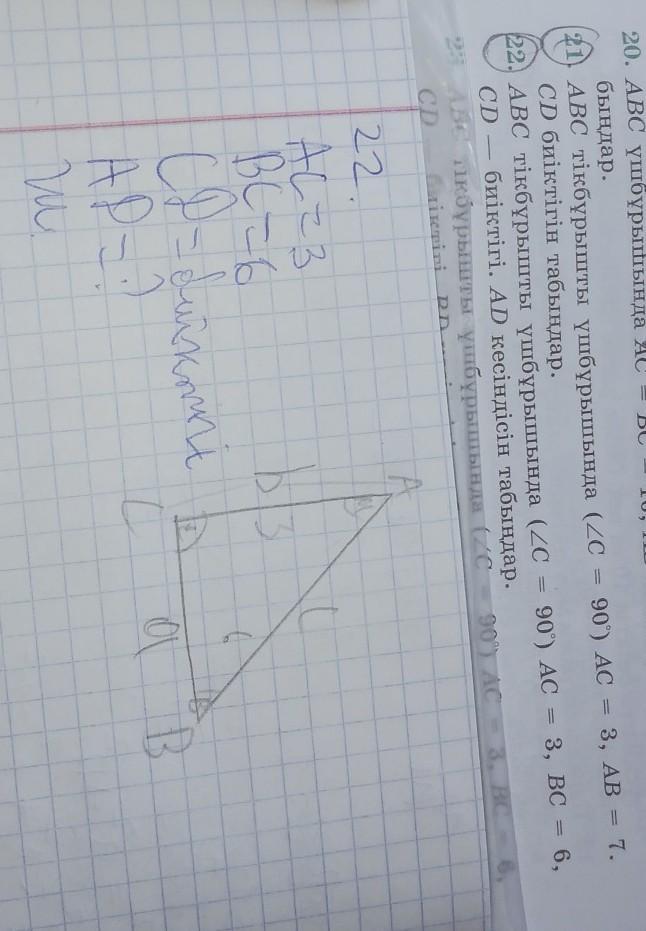 20. ABC үшбұрышында AC = BC = 10,
быңдар.
21. ABC тікбұрышты үшбұрышында (∠C = 90°) AC = 3, AB = 7.
CD биіктігін табыңдар.
22. ABC тікбұрышты үшбұрышында (∠C = 90°) AC = 3, BC = 6,
CD — биіктігі. AD кесіндісін табыңдар.
ABC тікбұрышты үшбұрышында (∠C = 90°) AC = 3, BC = 6,
CD биіктігі.
22.
AC = 3
BC = 6
CD = биіктігі
AD = ?
A
b 3
c
6
C
a
B